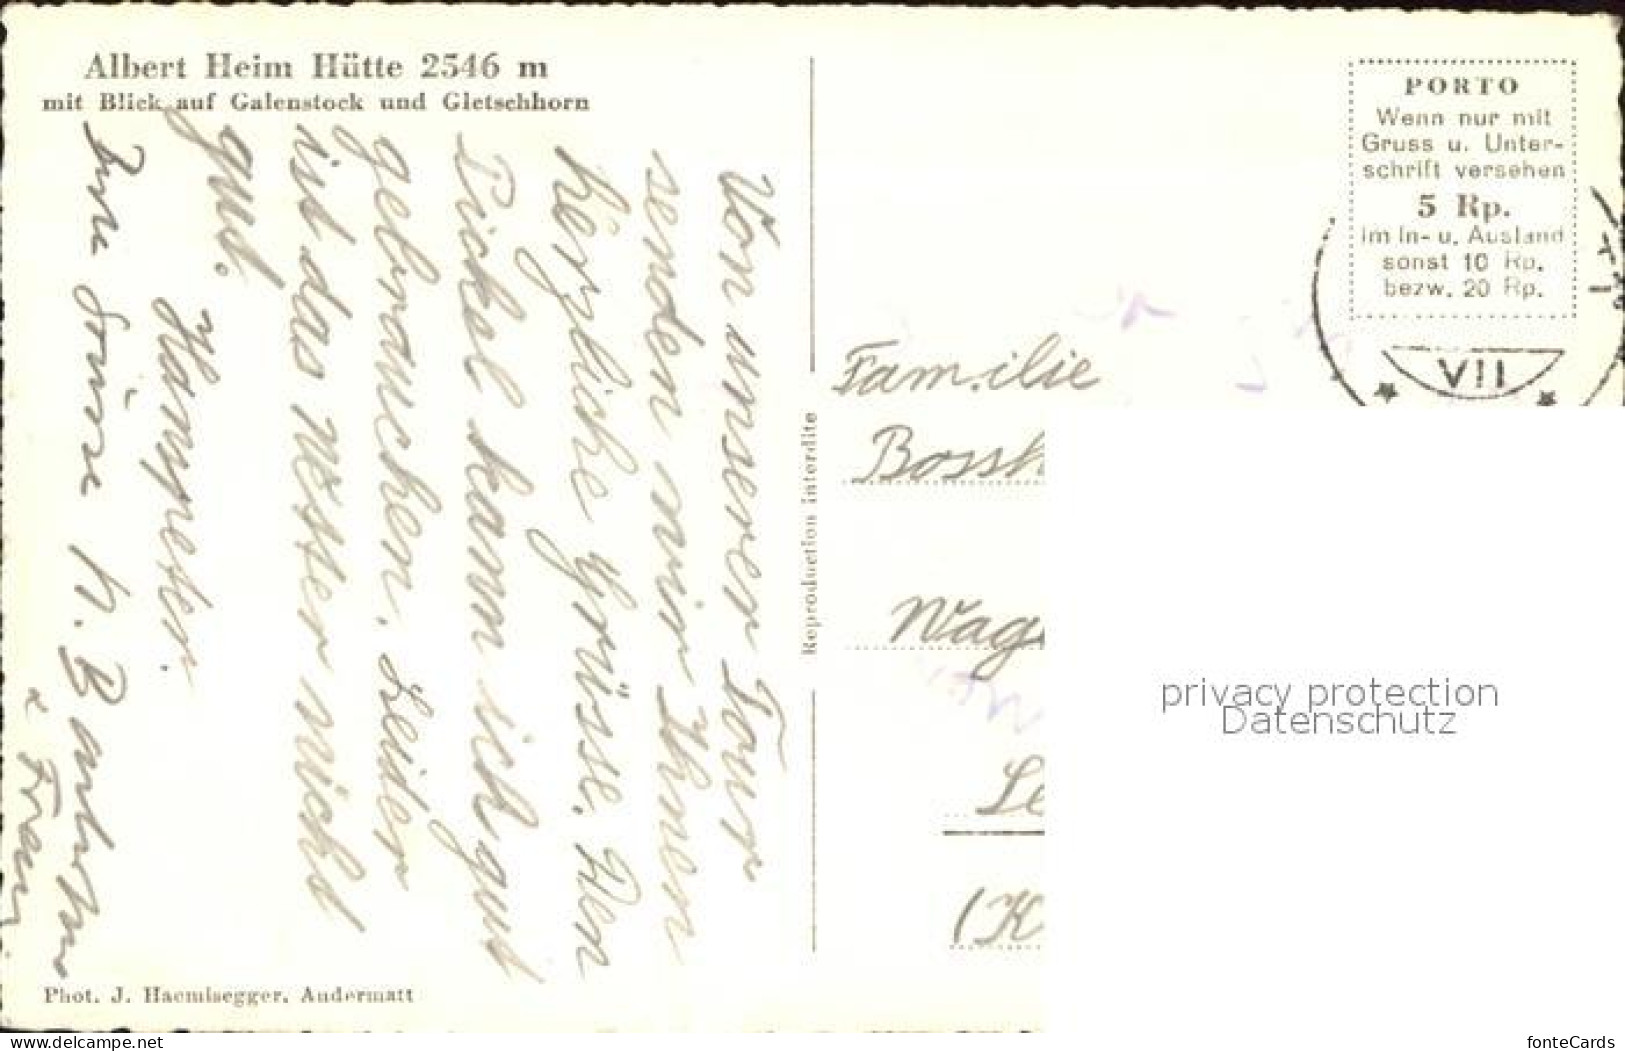 Albert Heim Hütte 2546 m
mit Blick auf Galenstock und Gletschhorn
Von unserer Tour
senden wir Ihnen
herzliche Grüsse. Den
Pickel kann ich gut
gebrauchen. Leider
ist das Wetter nicht
gut.
Hanspeter.
H. B
Frau
Phot. J. Haemisegger, Andermatt
Reproduction interdite
PORTO
Wenn nur mit
Gruss u. Unter-
schrift versehen
5 Rp.
im In- u. Ausland
sonst 10 Rp.
bezw. 20 Rp.
VII
Familie
Bossh
Wag
Le
(K
privacy protection
Datenschutz
www.delcampe.net
fonteCards